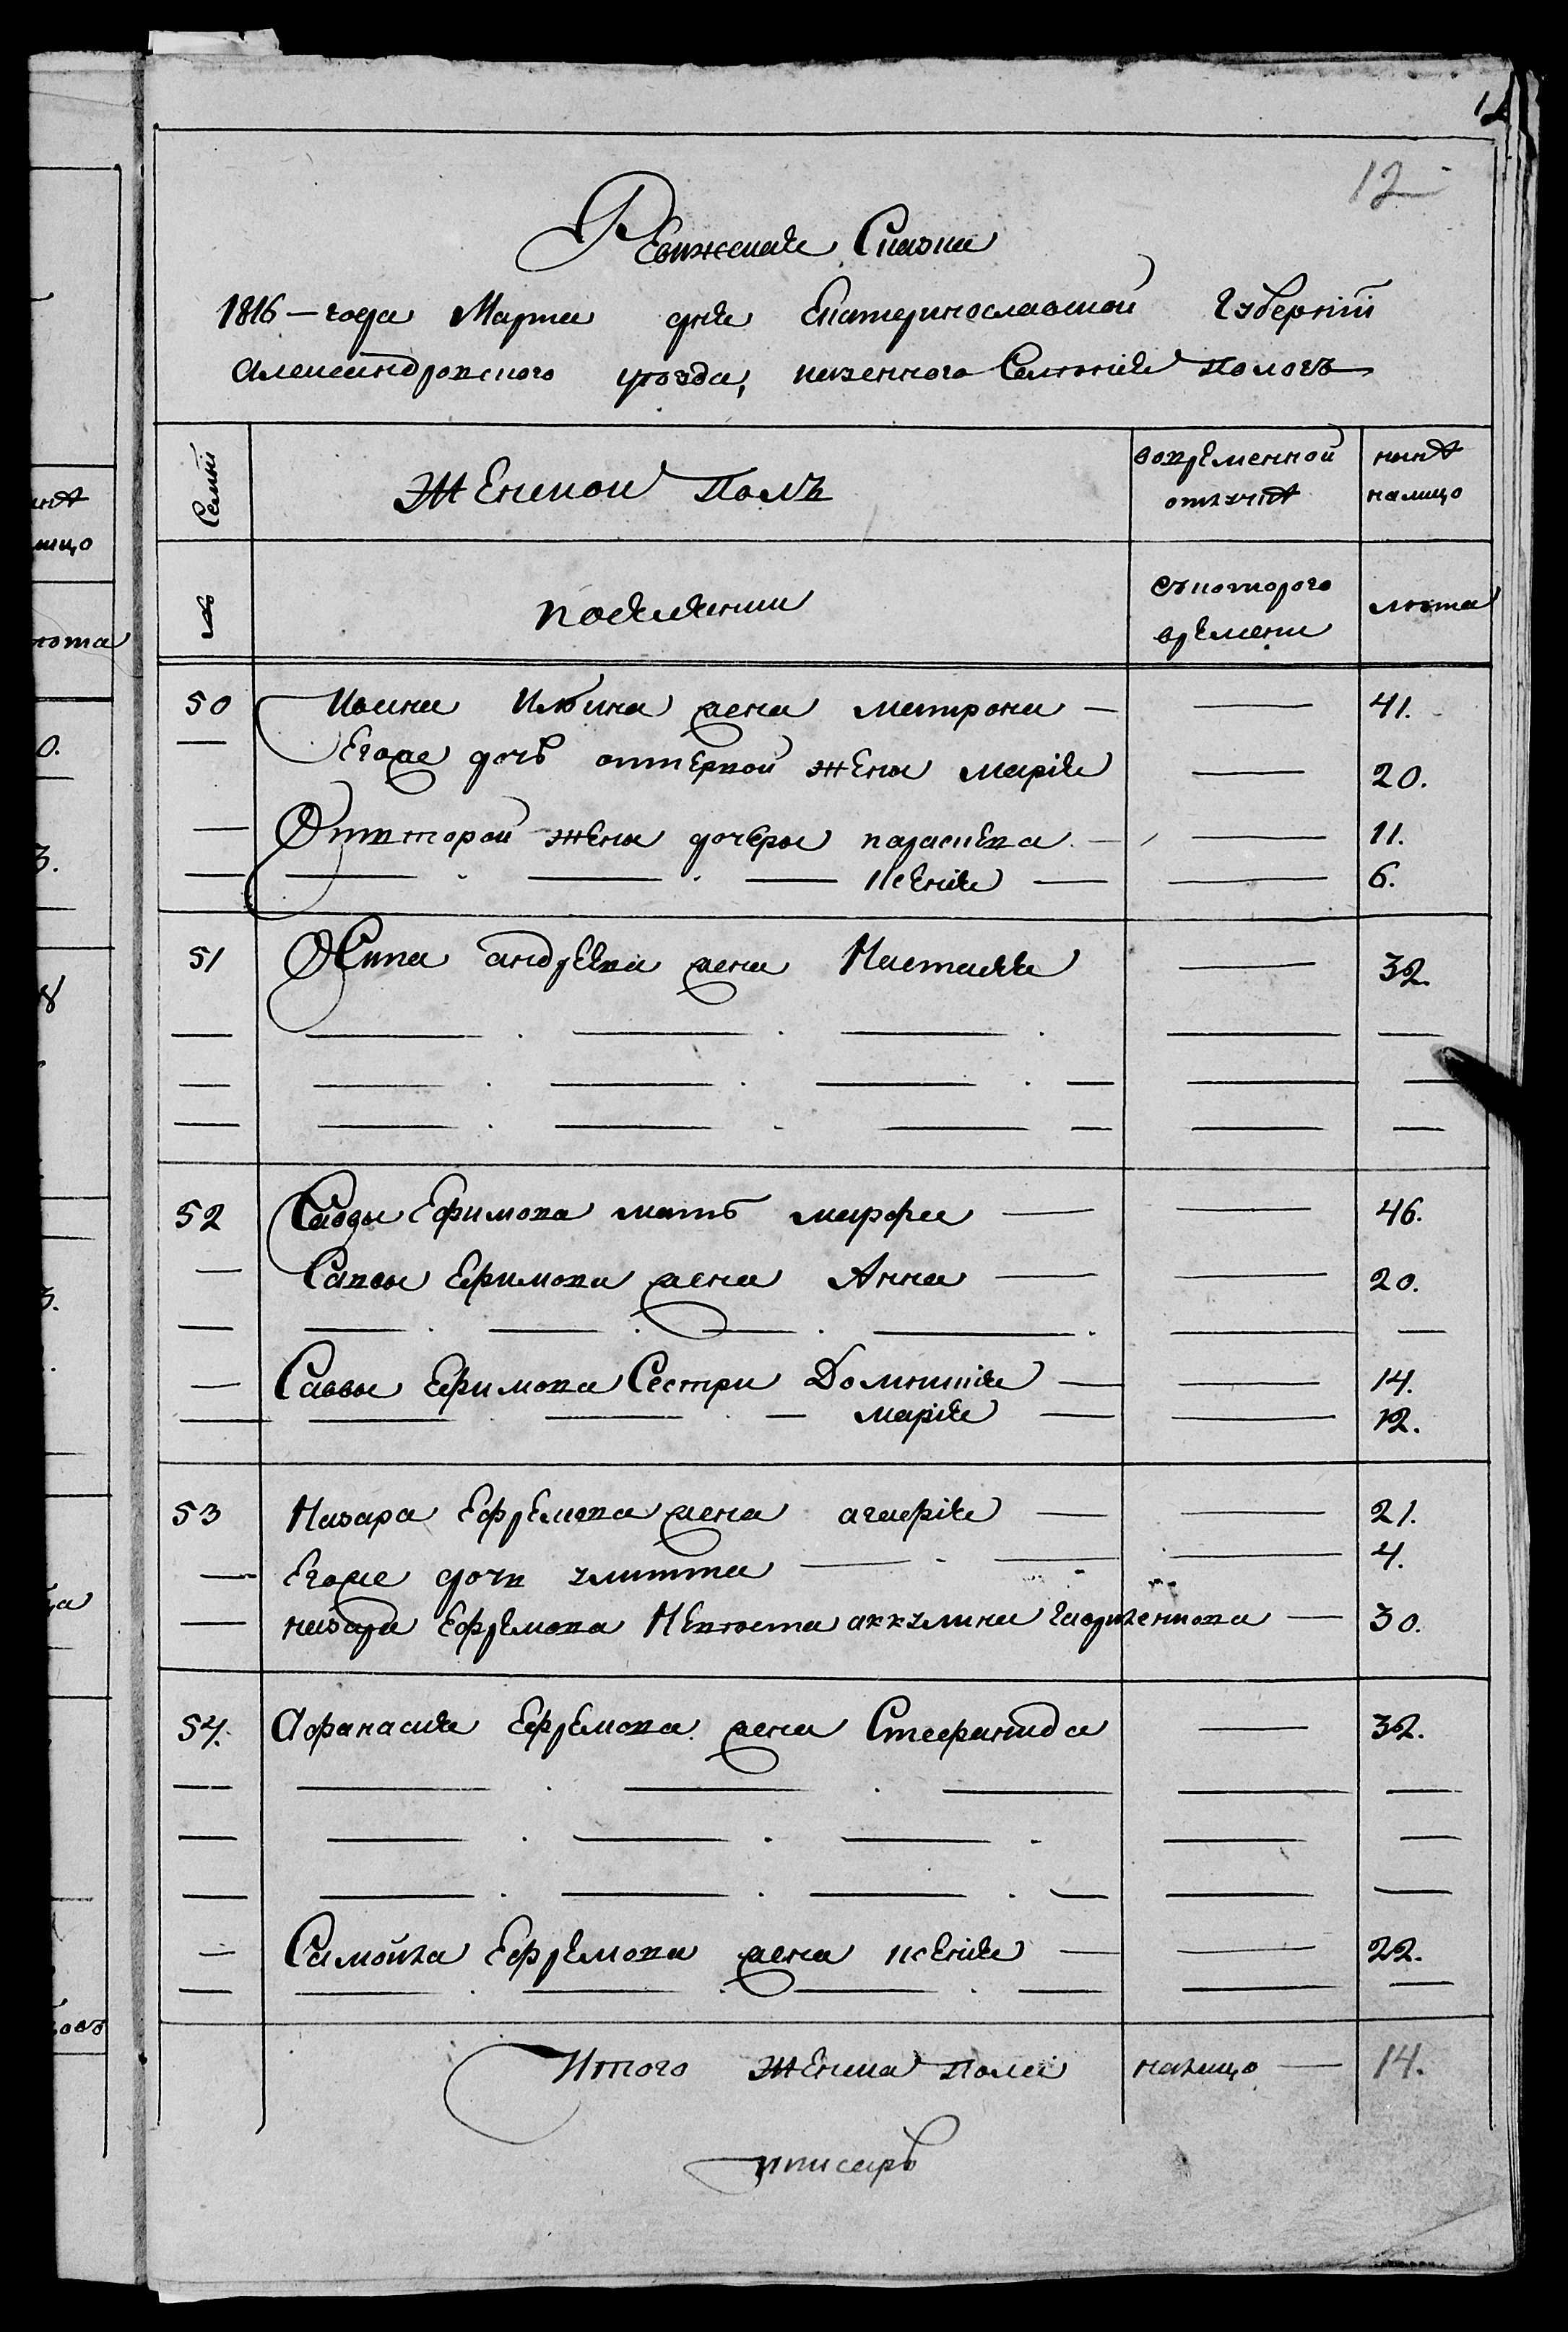 12
12
Ревижская Сказка
1816 – года Марта дня Екатеринославской Губернiи
Александровского уѣзда, казенного Селенiя Пологъ
Семьи
Женской Полъ
вовременной отлучкѣ
нынѣ налицо
№
посемянии
съ которого времени
лѣта
50 Ивана Ильина жена матрона — — 41.
— Егоже дочь отпервой жены марiя — 20.
— Отвторой жены дочеры параскева — — 11.
— — — — ксенiя — — 6.
51 Осипа андреева жена Настасия — 32.
52 Саввы Ефимова мать марфа — — 46.
— Саввы Ефимова жена Анна — — 20.
— Саввы Ефимова Сестри Домникiя — — 14.
— — — — марiя — — 12.
53 Назара Ефремова жена агафiя — — 21.
— Егоже дочь улитта — — — 4.
— назара Ефремова Невѣста аккулина гавриленкова — 30.
54. Афанасия Ефремова жена Стефанида — 32.
— Самойла Ефремова жена ксенiя — — 22.
Итого женска пола налицо — 14.
писарь
нѣ
лицо
лѣта
0.
3.
8
3.